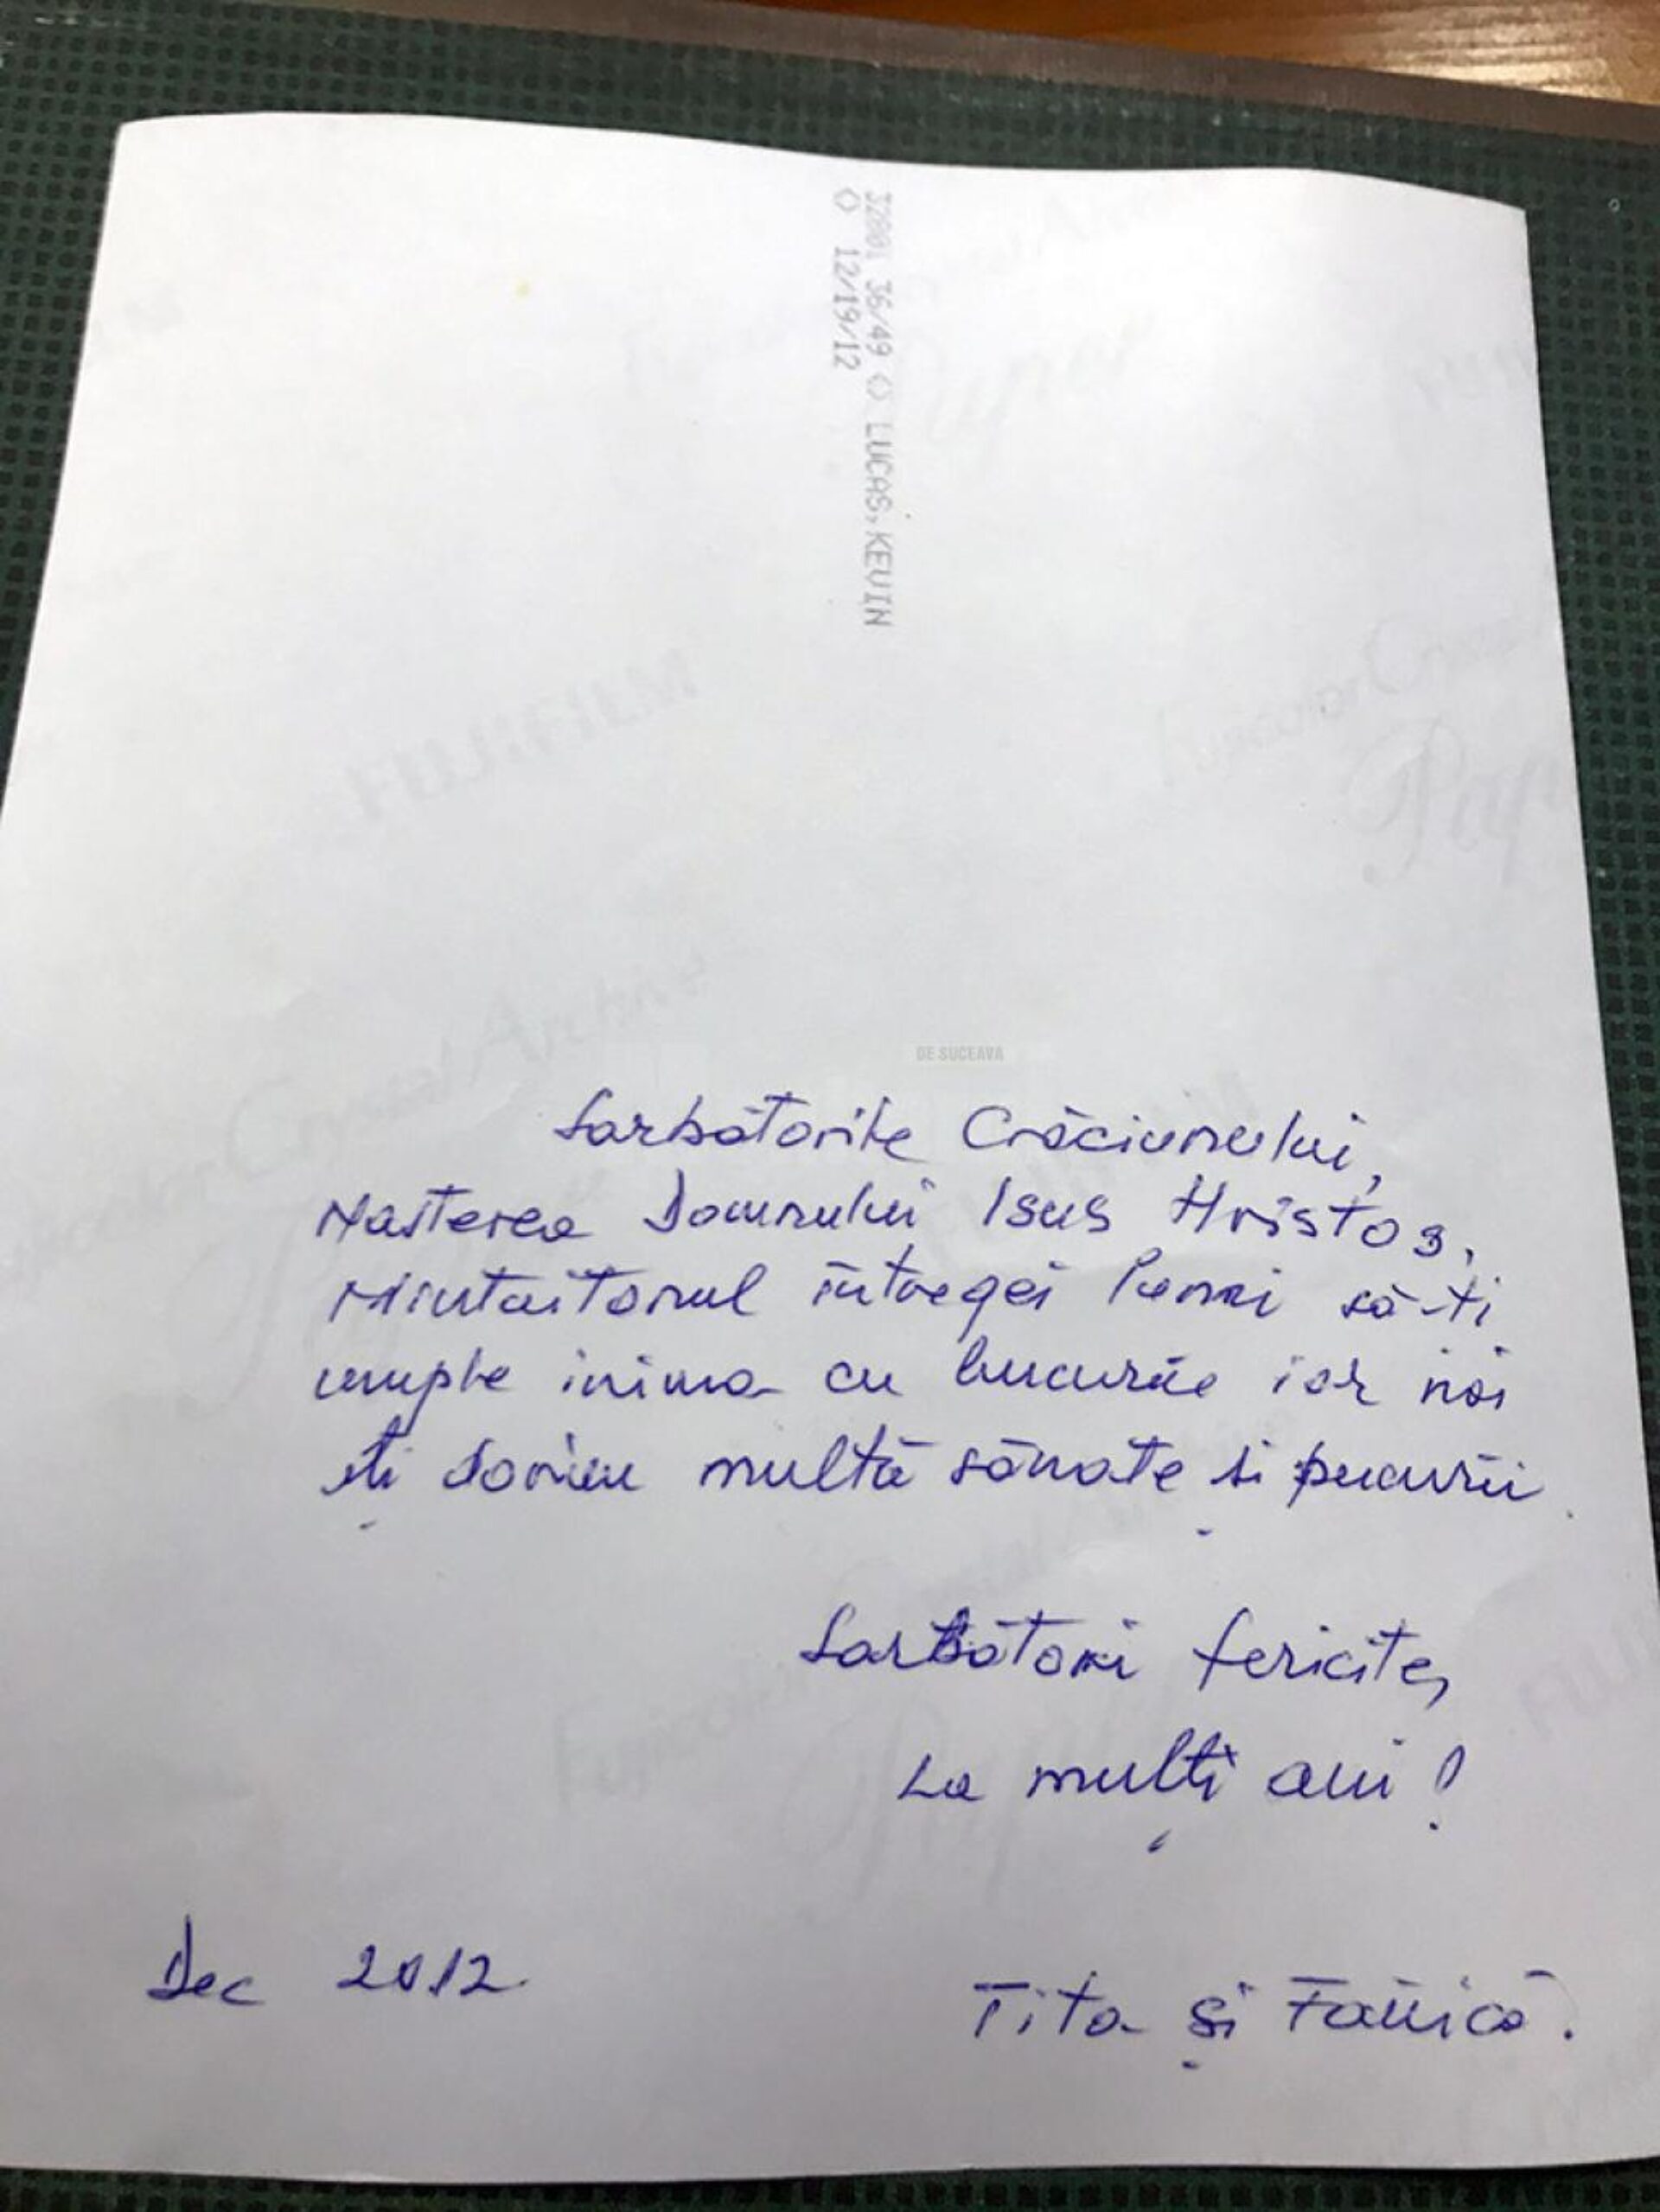 32001 36/49 ◇ LUCAS, KEVIN
◇ 12/19/12
FUJIFILM
Fujicolor Crystal Archive
Paper
DE SUCEAVA
Sarbătorile Crăciunului,
Nasterea Domnului Isus Hristos,
Mintuitorul întregei lumi să-ti
umple inima cu bucurie iar noi
iți dorim multă sănate și bucurii.
Sarbători fericite,
La mulți ani!
Dec 2012
Tita și Fănică.